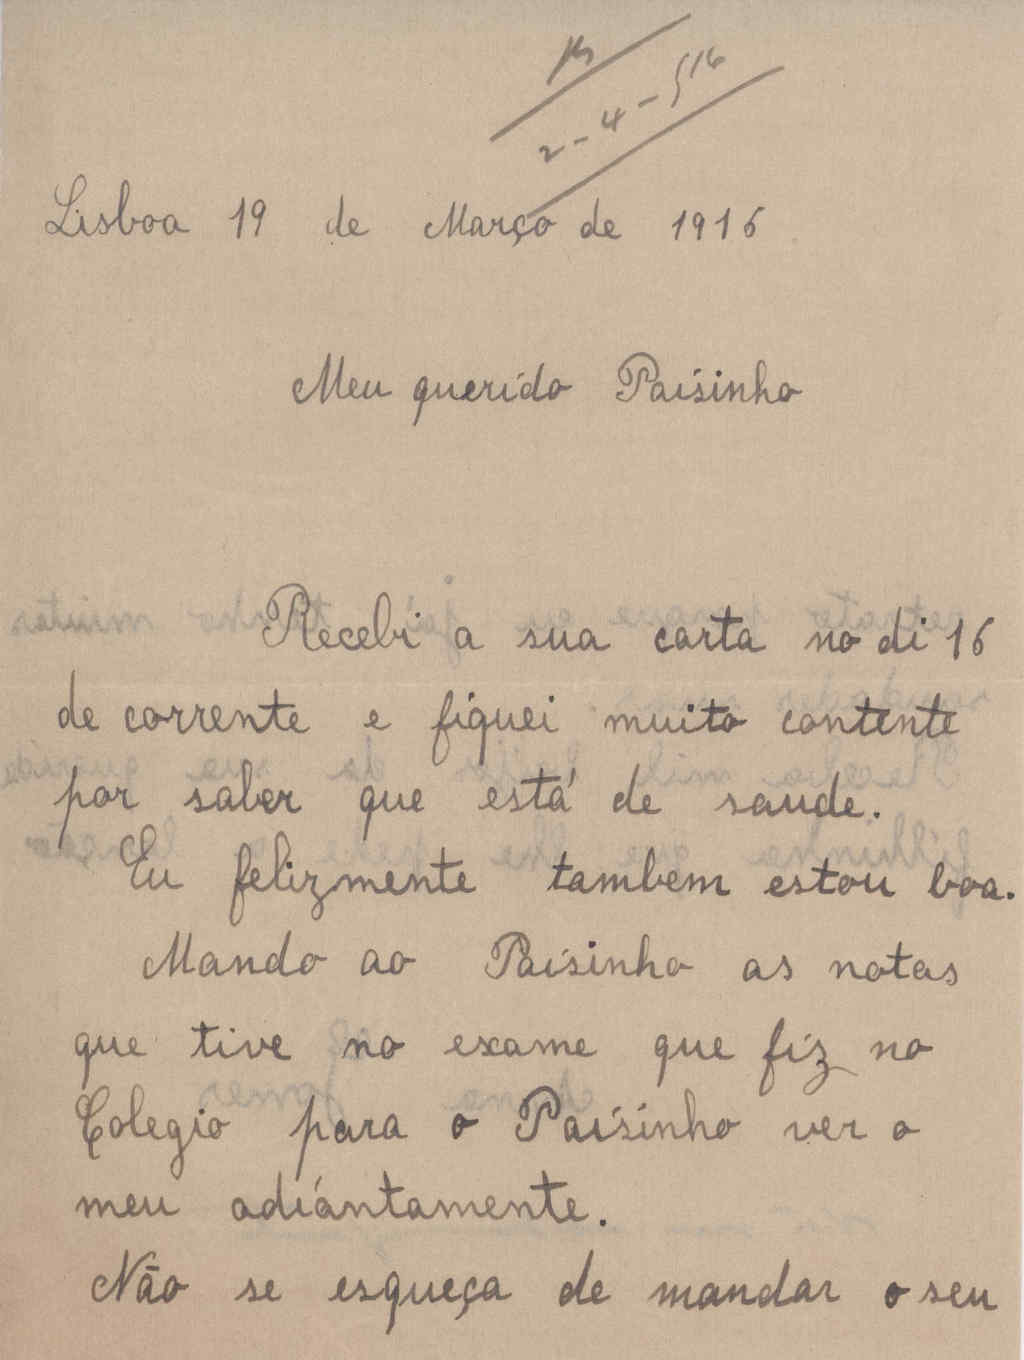 2-4-916
Lisboa 19 de Março de 1916
Meu querido Paisinho
Recebi a sua carta no di 16
de corrente e fiquei muito contente
por saber que está de saude.
Eu felizmente tambem estou boa.
Mando ao Paisinho as notas
que tive no exame que fiz no
Colegio para o Paisinho ver o
meu adiantamente.
Não se esqueça de mandar o seu